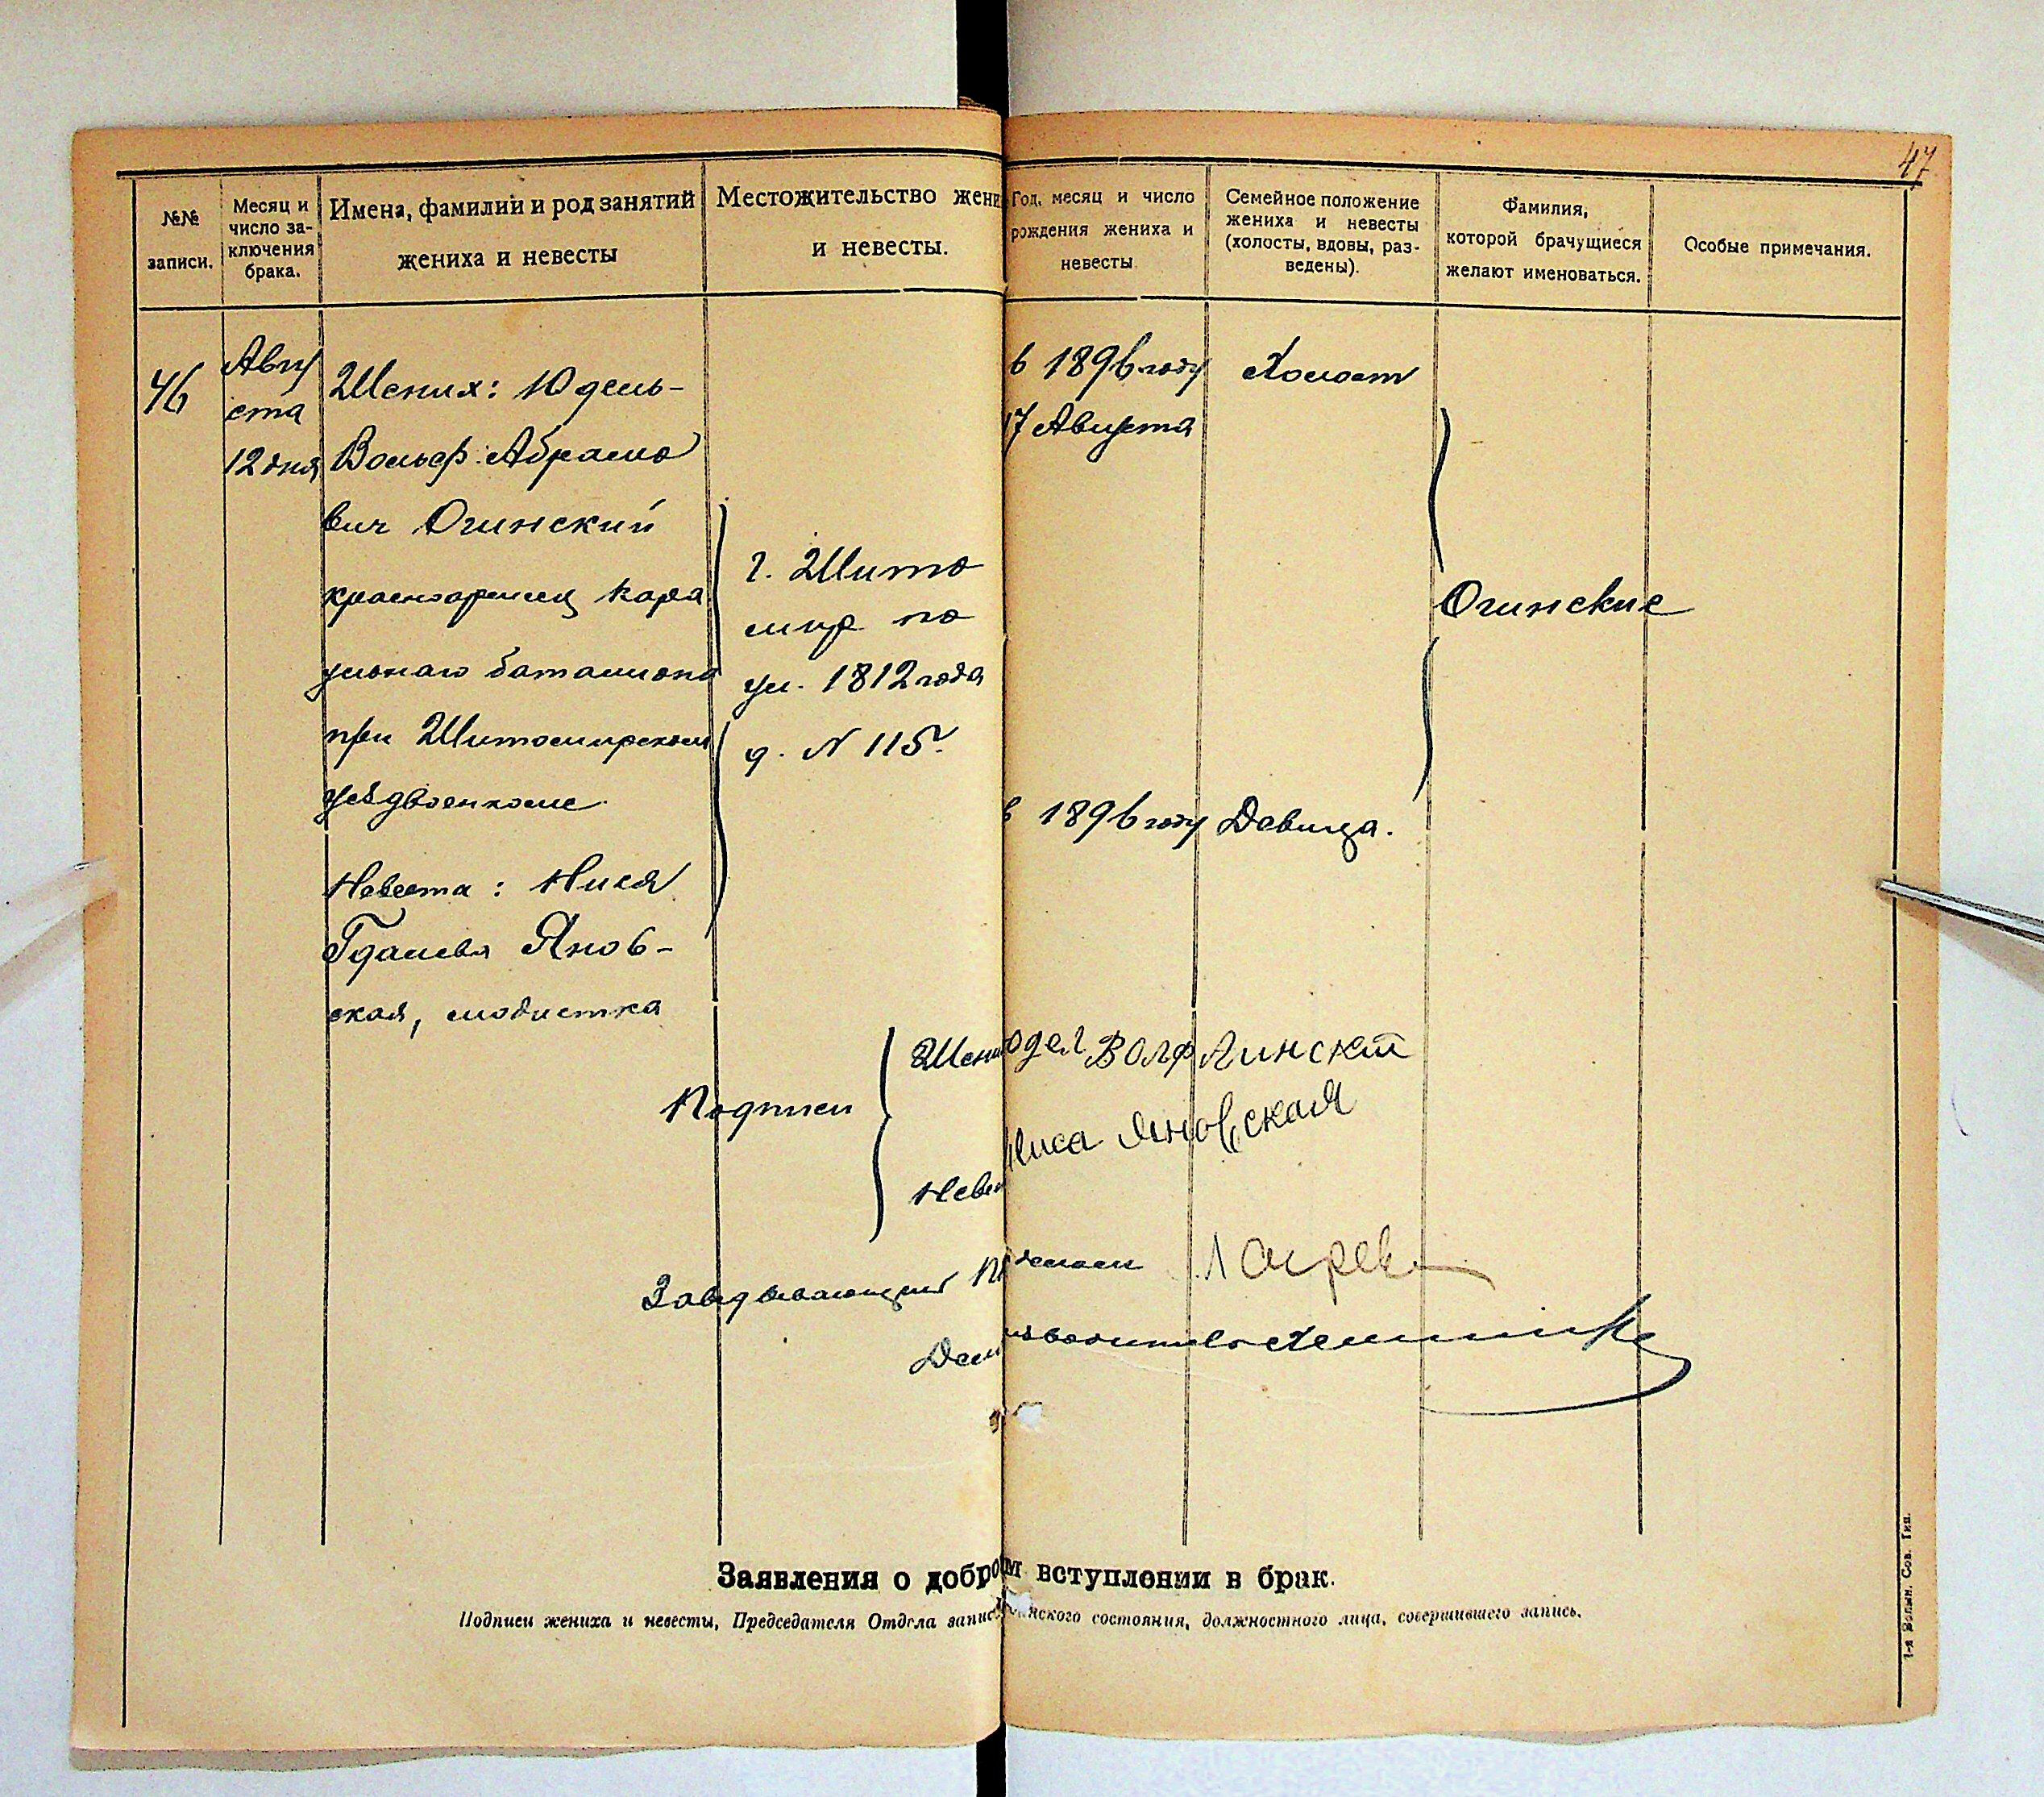 47
№№ записи.
Месяц и число заключения брака.
Имена, фамилии и род занятий
жениха и невесты
Местожительство жени
и невесты.
Год, месяц и число
рождения жениха и
невесты
Семейное положение
жениха и невесты
(холосты, вдовы, раз-
ведены).
Фамилия,
которой брачущиеся
желают именоваться.
Особые примечания.
46
Авгу
ста
12 дня
Жених: Юдель-
Вольф Абрамо
вич Огинский
красноармеец кара
ульнаго баталиона
при Житомирском
уездвоенкоме
Невеста: Нися
Гдалевя Янов-
ская, модистка
г. Жито
мир по
ул. 1812 года
д. N 115.
в 1896 году
17 Августа
в 1896 году
Холост
Девица.
Огинские
Подписи
Жени
одел Волф Агинский
Невес
Ниса Яновская
Заведывающий
Дел
изводитель
Заявления о добро м вступлении в брак.
Подписи жениха и невесты, Председателя Отдела запис нского состояния, должностного лица, совершившего запись.
1-я Волын. Сов. Тип.